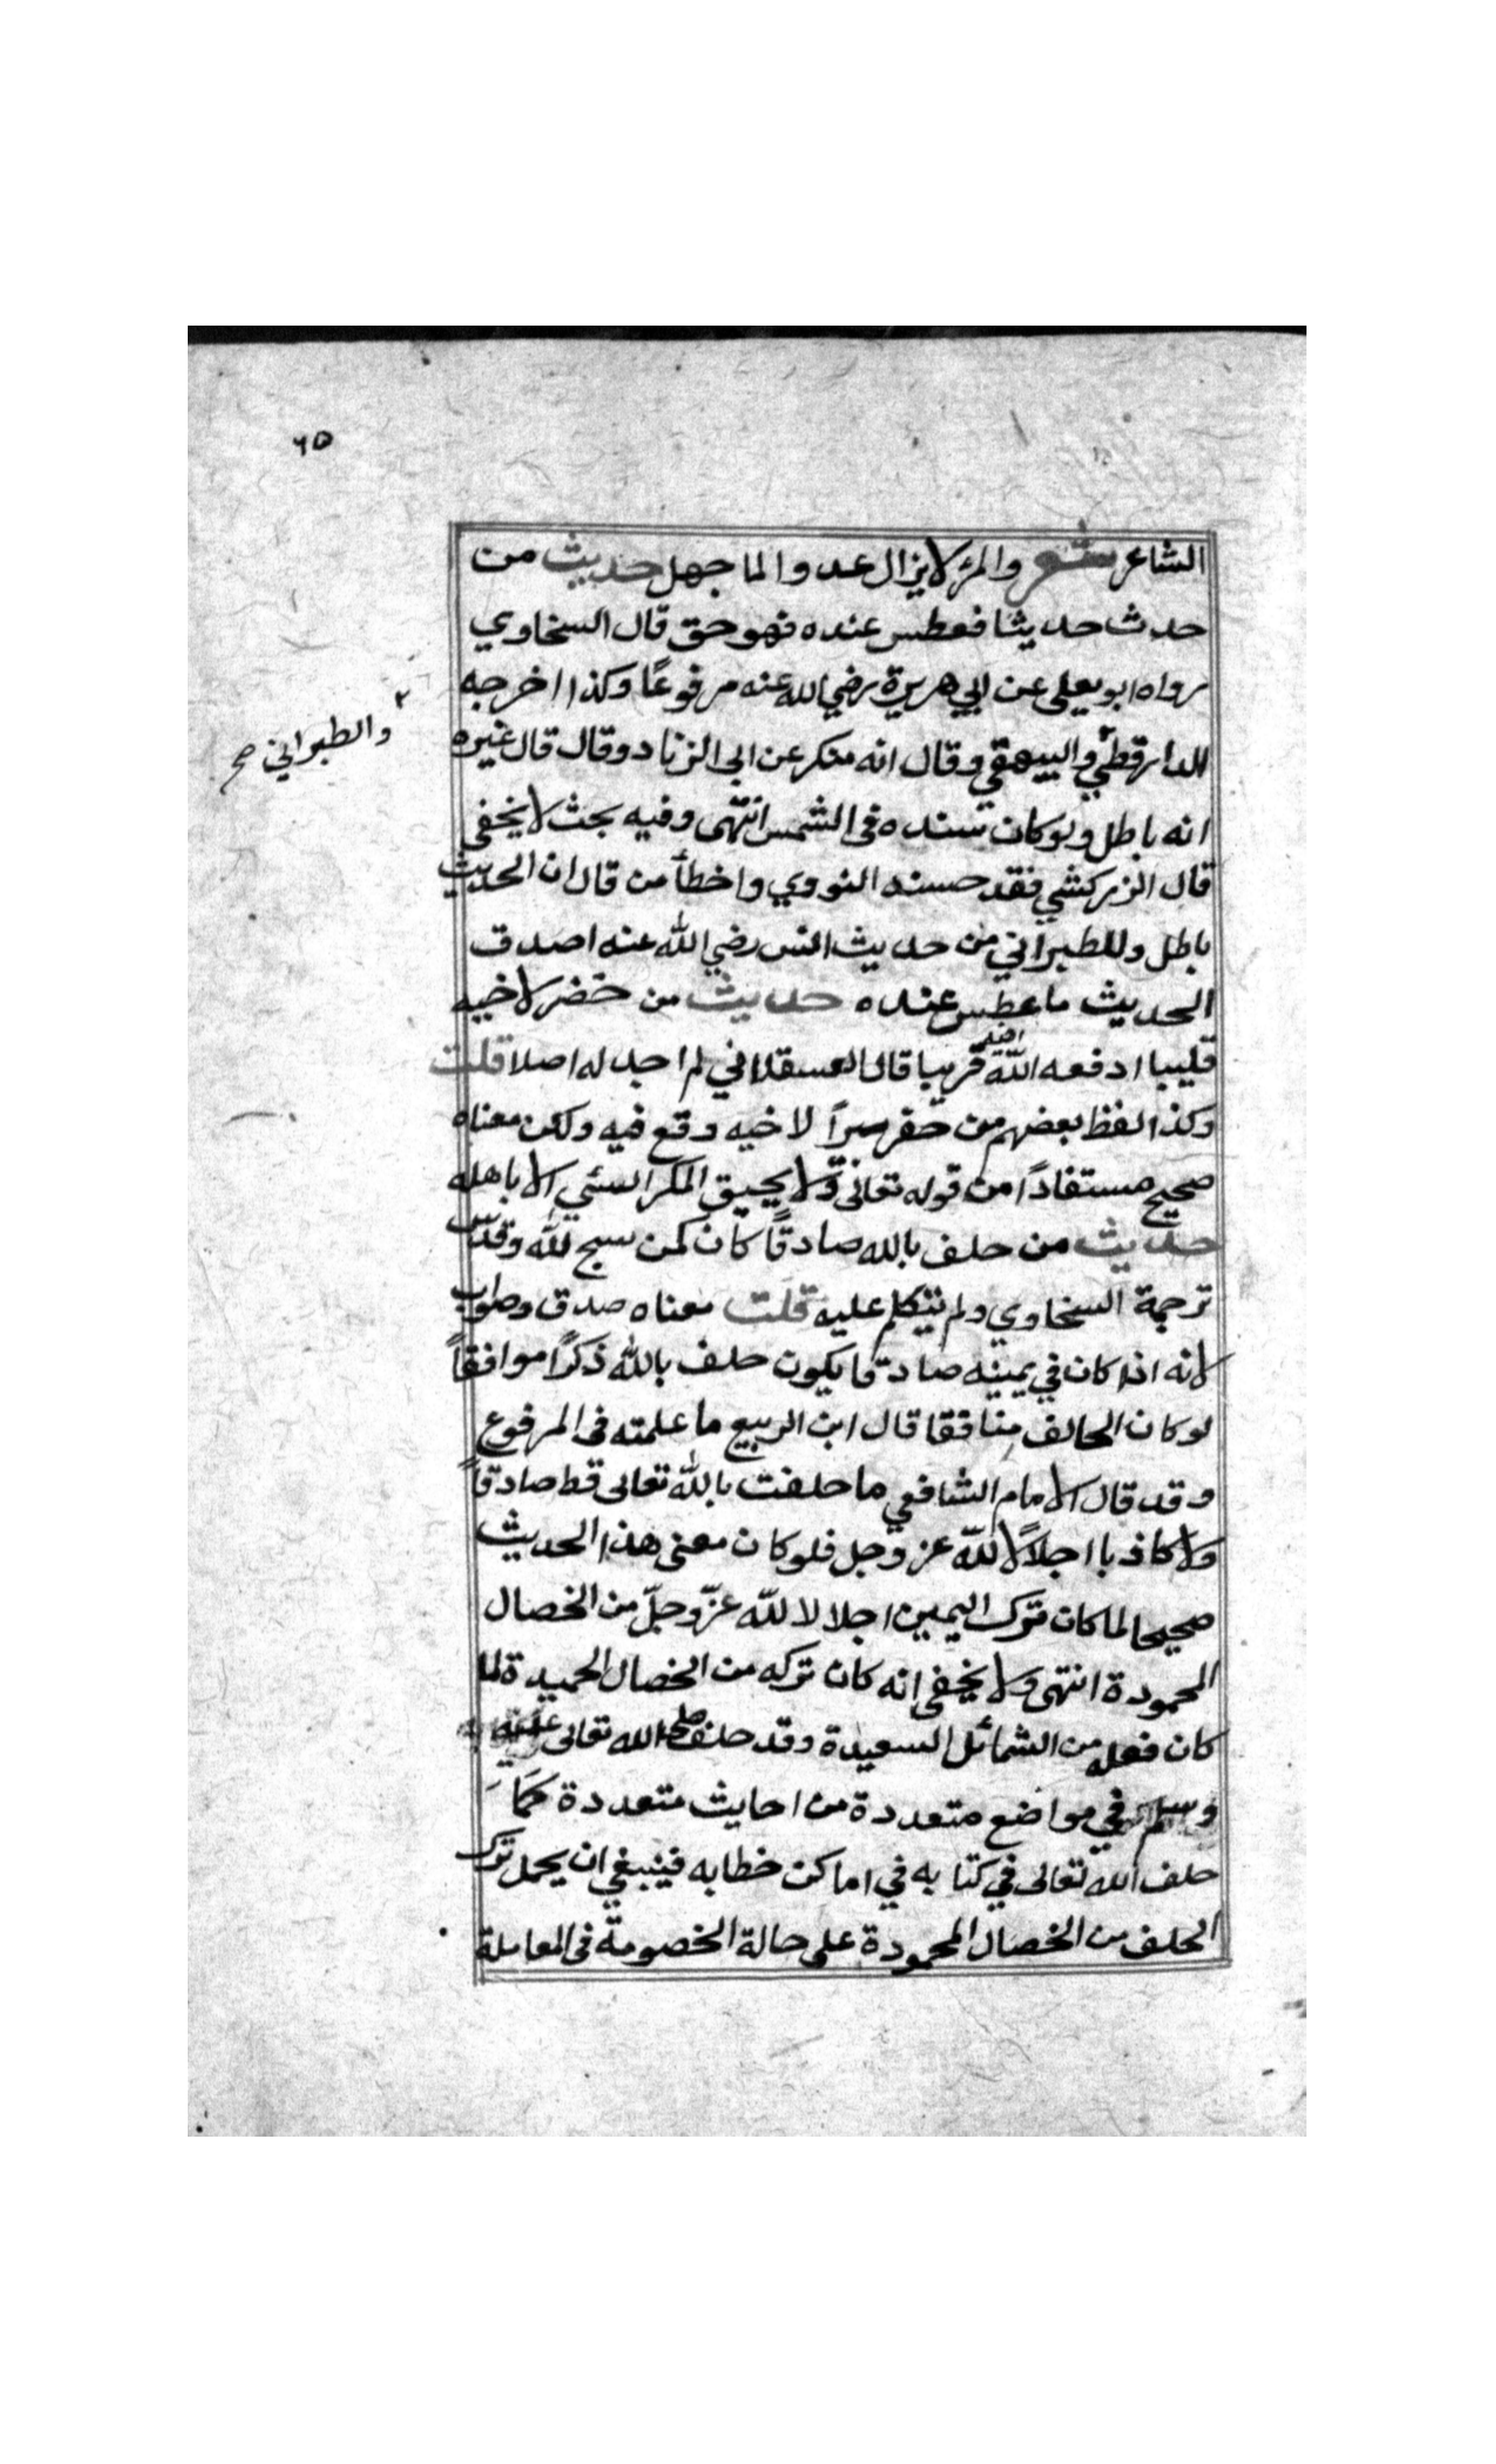 ٦٥
الشاعر شعر والمرٔ لا يزال عدوا لما جهل حديث من
حدث حديثا فعطس عنده فهو حق قال السخاوي
رواه ابو يعلى عن ابي هريرة رضي الله عنه مرفوعًا وكذا اخرجه
الدارقطني والبيهقي وقال انه منكر عن ابى الزناد وقال قال غيره
والطبراني صح
انه باطل ولو كان سنده فى الشمس انتهى وفيه بحث لا يخفى
قال الزركشي فقد حسنه النووي واخطأ من قال ان الحديث
باطل وللطبراني من حديث انس رضي الله عنه اصدق
الحديث ما عطس عنده حديث من حضر لاخيه
قليبا ادفعه الله قريبا قال العسقلاني لم اجد له اصلا قلت
وكذا لفظ بعضهم من حفر بيراً لاخيه وقع فيه ولكن معناه
صحيح مستفاداً من قوله تعالى ولا يحيق المكر السئي الا باهله
حديث من حلف بالله صادقًا كان كمن سبح لله وقدس
ترجمة السخاوي ولم يتكلم عليه قلت معناه صدق وصواب
لانه اذا كان في يمينه صادقا يكون حلف بالله ذكرًا موافقاً
لو كان الحالف منافقا قال ابن الربيع ما علمته فى المرفوع
وقد قال الامام الشافعي ما حلفت بالله تعالى قط صادقاً
ولا كاذبا اجلالًا لله عز وجل فلو كان معنى هذا الحديث
صحيحا لما كان ترك اليمين اجلالا لله عزّ وجلّ من الخصال
المحمودة انتهى ولا يخفى انه كان تركه من الخصال الحميدة لما
كان فعله من الشمائل السعيدة وقد حلف صلى الله تعالى عليه
وسلم في مواضع متعددة من احايث متعددة كمَا
حلف الله تعالى في كتابه في اماكن خطابه فينبغي ان يحمل ترك
الحلف من الخصال المحمودة على حالة الخصومة فى المعاملة